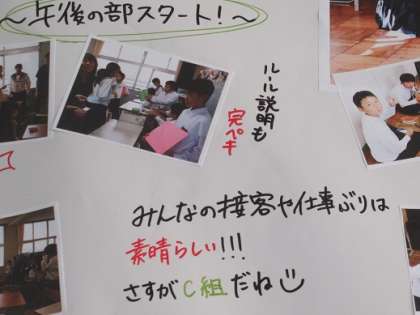 ～午後の部スタート！～
ルール説明も
完ペキ
みんなの接客や仕事ぶりは
素晴らしい!!!
さすがC組だね